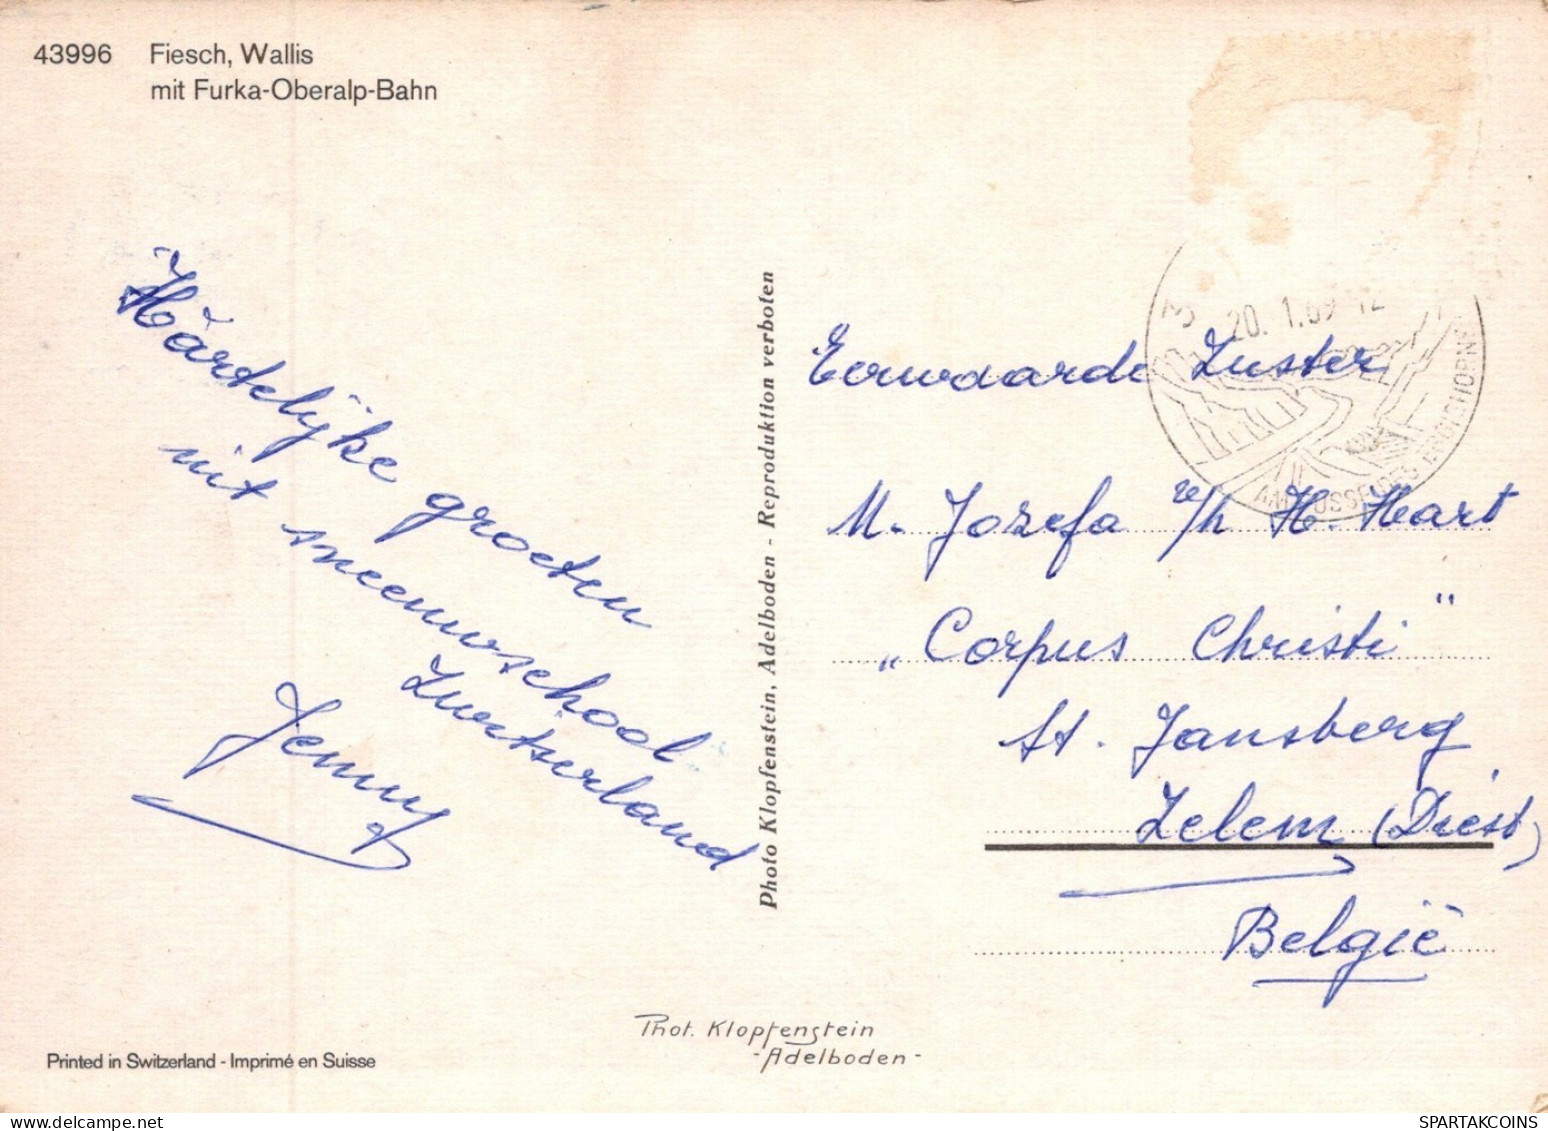 43996 Fiesch, Wallis
mit Furka-Oberalp-Bahn
Hartelijke groeten
uit sneeuwschool
Zwitserland
Jenny
Photo Klopfenstein, Adelboden - Reproduktion verboten
20. 1.69-12
AM FUSSE DES EGGISHORNS
Eerwaarde Zuster
M. Jozefa v/h H. Hart
„Corpus Christi"
St. Jansberg
Zelem (Diest)
België
Phot. Klopfenstein
-Adelboden-
Printed in Switzerland - Imprimé en Suisse
SPARTAKCOINS